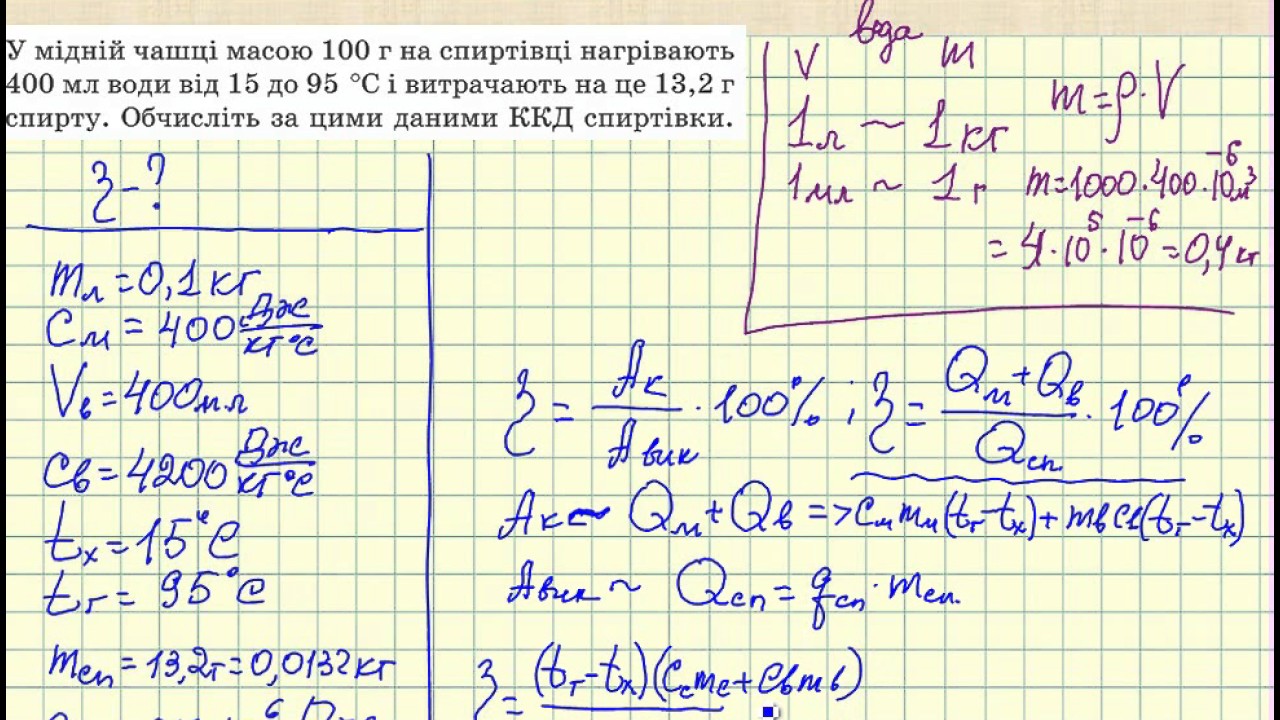 У мідній чашці масою 100 г на спиртівці нагрівають
400 мл води від 15 до 95 °С і витрачають на це 13,2 г
спирту. Обчисліть за цими даними ККД спиртівки.
вода
V m
1л ~ 1кг
1мл ~ 1г
m=ρ·V
m=1000·400·10⁻⁶м³
=4·10⁵·10⁻⁶=0,4кг
η-?
mл=0,1кг
Cм=400 Дж/кг°С
Vв=400мл
Cв=4200 Дж/кг°С
tх=15°C
tг=95°C
mсп=13,2г=0,0132кг
η = Aк/Aвик · 100%; η = Qм+Qв/Qсп · 100%
Aк ~ Qм+Qв => Cм mм(tг-tх)+mв Cв(tг-tх)
Aвик ~ Qсп = qсп · mсп.
η = (tг-tх)(Cс mс+Cв mв)